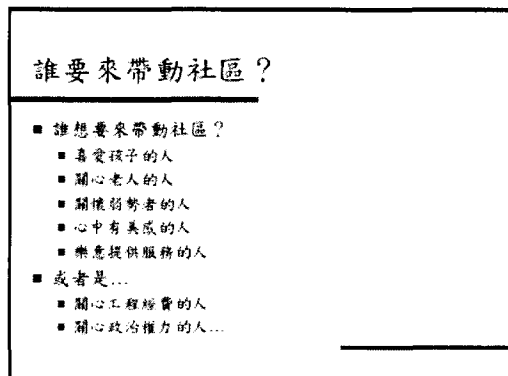 誰要來帶動社區？
■ 誰想要來帶動社區？
■ 喜愛孩子的人
■ 關心老人的人
■ 關懷弱勢者的人
■ 心中有美感的人
■ 樂意提供服務的人
■ 或者是...
■ 關心工程經費的人
■ 關心政治權力的人...